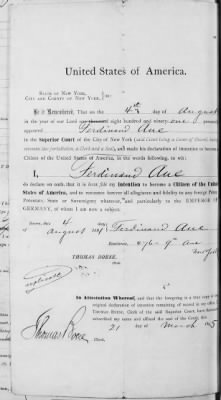 United States of America.
STATE OF NEW YORK,
CITY AND COUNTY OF NEW YORK, } ss:
Be it Remembered, That on the 4th day of August
in the year of our Lord one thousand eight hundred and ninety-one personally
appeared Ferdinand Aue
in the Superior Court of the City of New York (said Court being a Court of Record, having
common law jurisdiction, a Clerk and a Seal), and made his declaration of intention to become
Citizen of the United States of America, in the words following, to wit:
I, Ferdinand Aue
do declare on oath, that it is bona fide my Intention to become a Citizen of the United
States of America, and to renounce forever all allegiance and fidelity to any foreign Prince,
Potentate, State or Sovereignty whatever, and particularly to the EMPEROR OF
GERMANY, of whom I am now a subject.
Sworn, this 4
August 1891 Ferdinand Aue
Residence, 876 - 9th Ave
New York
THOMAS BOESE,
In Attestation Whereof, and that the foregoing is a true copy of the
original declaration of intention remaining of record in my office, I,
THOMAS BOESE, Clerk of the said Superior Court, have hereunto
subscribed my name and affixed the seal of the Court, this
21 day of March
Thomas Boese